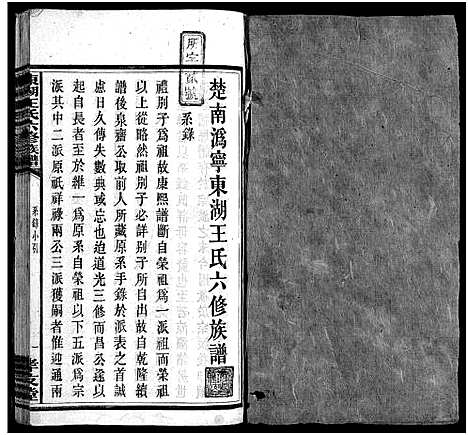 楚南溈寧東湖王氏六修族譜
系錄
禮別子爲祖故康熙譜斷自榮祖爲一派而榮祖
以上故不錄然祖別子必詳別子所自出故自乾隆續
譜後泉齋公取前人所藏原系手錄於派表之首誠
慮日久傳失數典或忘也迨道光三修而昌公遂以
起自長者至於維一爲原系自榮祖以下五派爲宗
派其中二派原祇祥祿兩公三派獲嗣者惟迎通南
東湖王氏六修族譜
系錄小引
一
孝友堂